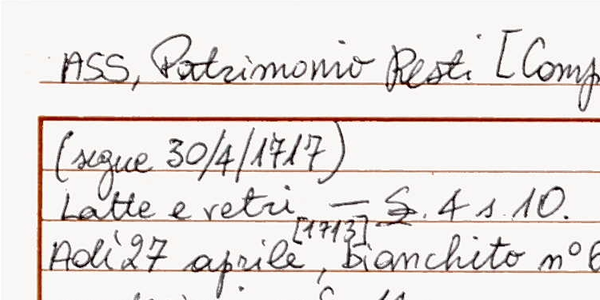 ASS, Patrimonio Resti [Comp
(segue 30/4/1717)
Latte e vetri — £. 4 s. 10.
[1713]
Adì 27 aprile, bianchito n° 6